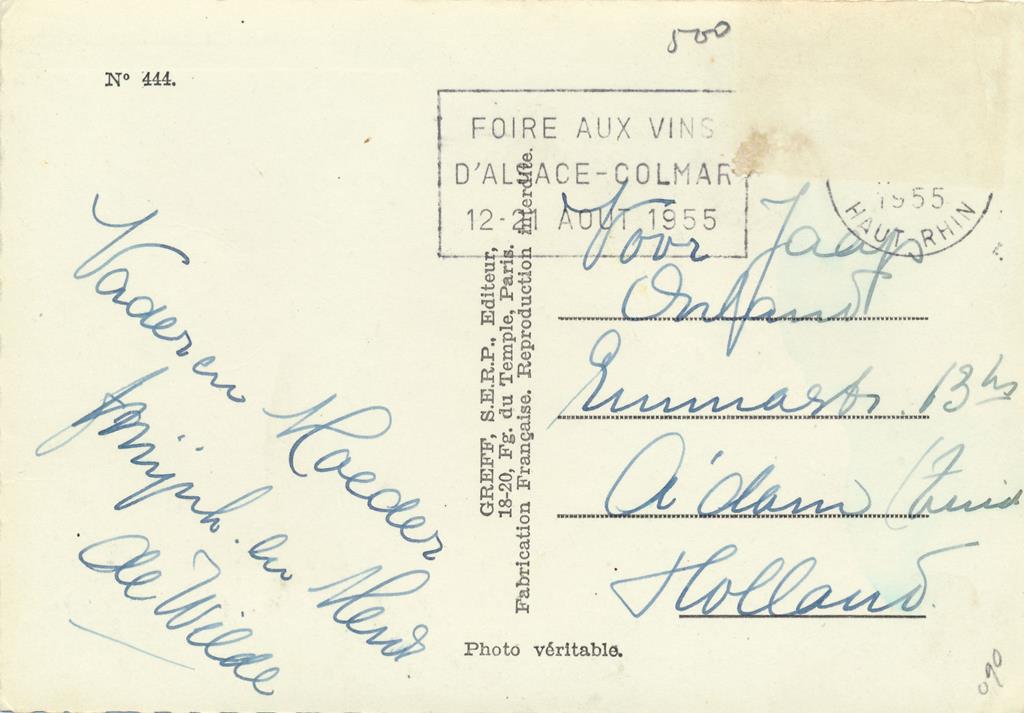 500
N° 444.
FOIRE AUX VINS
D'ALSACE-COLMAR
12-21 AOUT 1955
1955
HAUT RHIN
Vader en Moeder
en Henk
de Wilde
GREFF, S.E.R.P., Editeur,
18-20, Fg. du Temple, Paris.
Fabrication Française. Reproduction interdite.
Voor Jaap
Emmastr. 13hs
A'dam (Zuid
Holland.
Photo véritable.
090